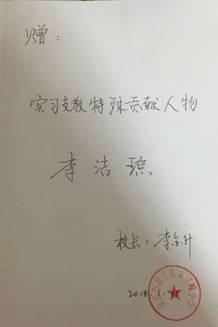 贝曾：
实习支教特殊贡献人物
李洁琼
校长：李金升
2018.1.